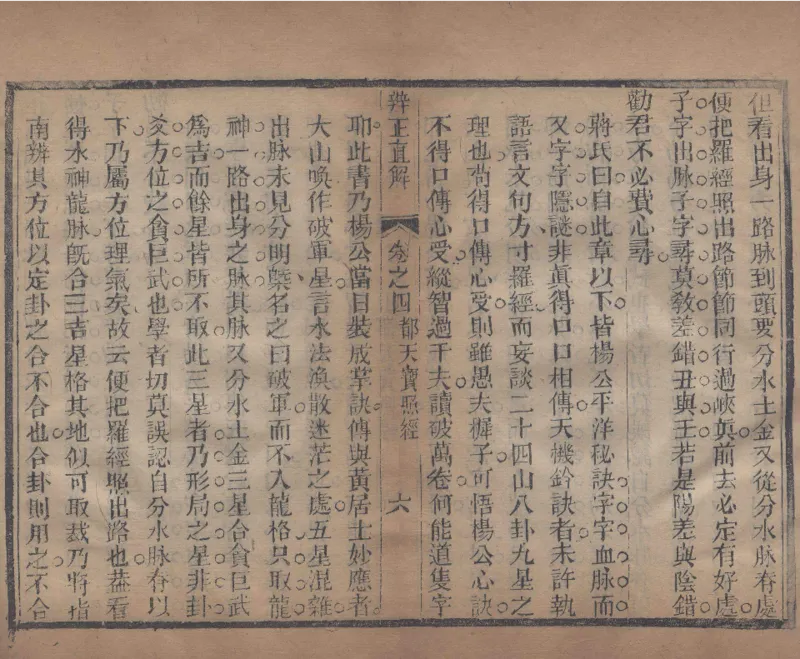 但看出身一路脉到頭要分水土金又從分水脉脊處
便把羅經照出路節節同行過峽眞前去必定有好處
子字出脉子字尋莫敎差錯丑與壬若是陽差與陰錯
勸君不必費心尋
蔣氏曰自此章以下皆楊公平洋秘訣字字血脉而
又字字隱謎非眞得口口相傳天機鈐訣者未許執
語言文句方寸羅經而妄談二十四山八卦九星之
理也茍得口傳心受則雖愚夫穉子可悟楊公心訣
不得口傳心受縱智過千夫讀破萬卷何能道隻字
辨正直解 卷之四都天寶照經 六
耶此書乃楊公當日裝成掌訣傳與黃居士妙應者
大山喚作破軍星言水法渙散迷茫之處五星混雜
出脉未見分明槩名之曰破軍而不入龍格只取龍
神一路出身之脉其脉又分水土金三星合貪巨武
爲吉而餘星皆所不取此三星者乃形局之星非卦
爻方位之貪巨武也學者切莫誤認自分水脉脊以
下乃屬方位理氣矣故云便把羅經照出路也葢看
得水神龍脉旣合三吉星格其地似可取裁乃將指
南辨其方位以定卦之合不合也合卦則用之不合